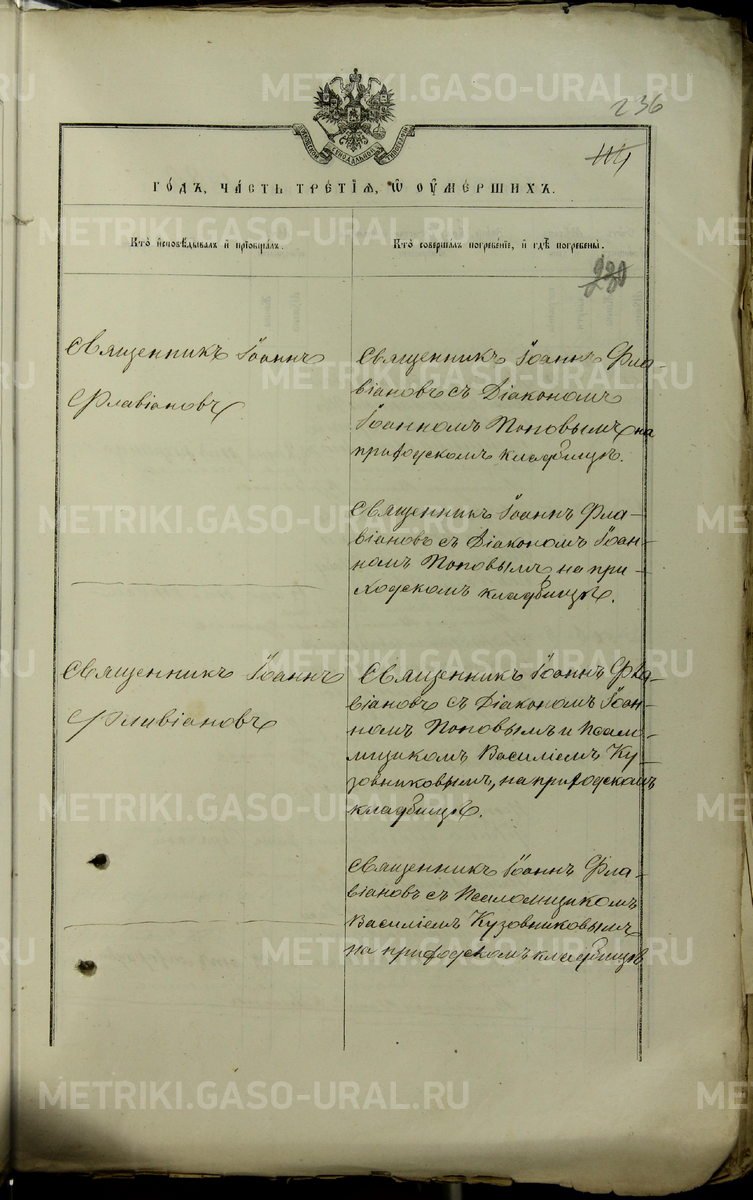 METRIKI.GASO-URAL.RU
236
114
МОСКОВСКОЙ СѴНОДАЛЬНОЙ ТИПОГРАФІИ
ГО́ДЪ, ЧА́СТЬ ТРЕ́ТІѦ, Ѡ҆ ОУ҆МЕ́РШИХЪ.
Кто̀ и҆сповѣ́дывалъ и҆ прїѡбща́лъ.
Кто̀ соверша́лъ погребе́нїе, и҆ гдѣ̀ погребены̀.
230
Священникъ Іоаннъ
Флавіановъ
Священникъ Іоаннъ Фла-
віановъ съ Діакономъ
Іоанномъ Поповымъ на
приходскомъ кладбищѣ.
Священникъ Іоаннъ Фла-
віановъ съ Діакономъ Іоан-
номъ Поповымъ, на при-
ходскомъ кладбищѣ.
Священникъ Іоаннъ
Флавіановъ
Священникъ Іоаннъ Фла-
віановъ съ Діакономъ Іоан-
номъ Поповымъ и Псалом-
щикомъ Василіемъ Ку-
зовниковымъ, на приходскомъ
кладбищѣ.
Священникъ Іоаннъ Фла-
віановъ съ Псаломщикомъ
Василіемъ Кузовниковымъ
на приходскомъ кладбищѣ
METRIKI.GASO-URAL.RU